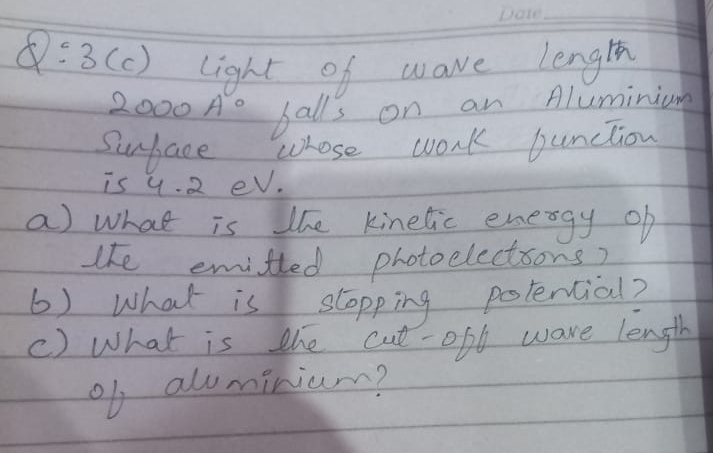 Date
Q:3(c) Light of wave length
2000 A° fall's on an Aluminium
Surface whose work function
is 4.2 eV.
a) What is the kinetic energy of
the emitted photoelectrons?
b) What is stopping potential?
c) What is the cut-off wave length
of aluminium?